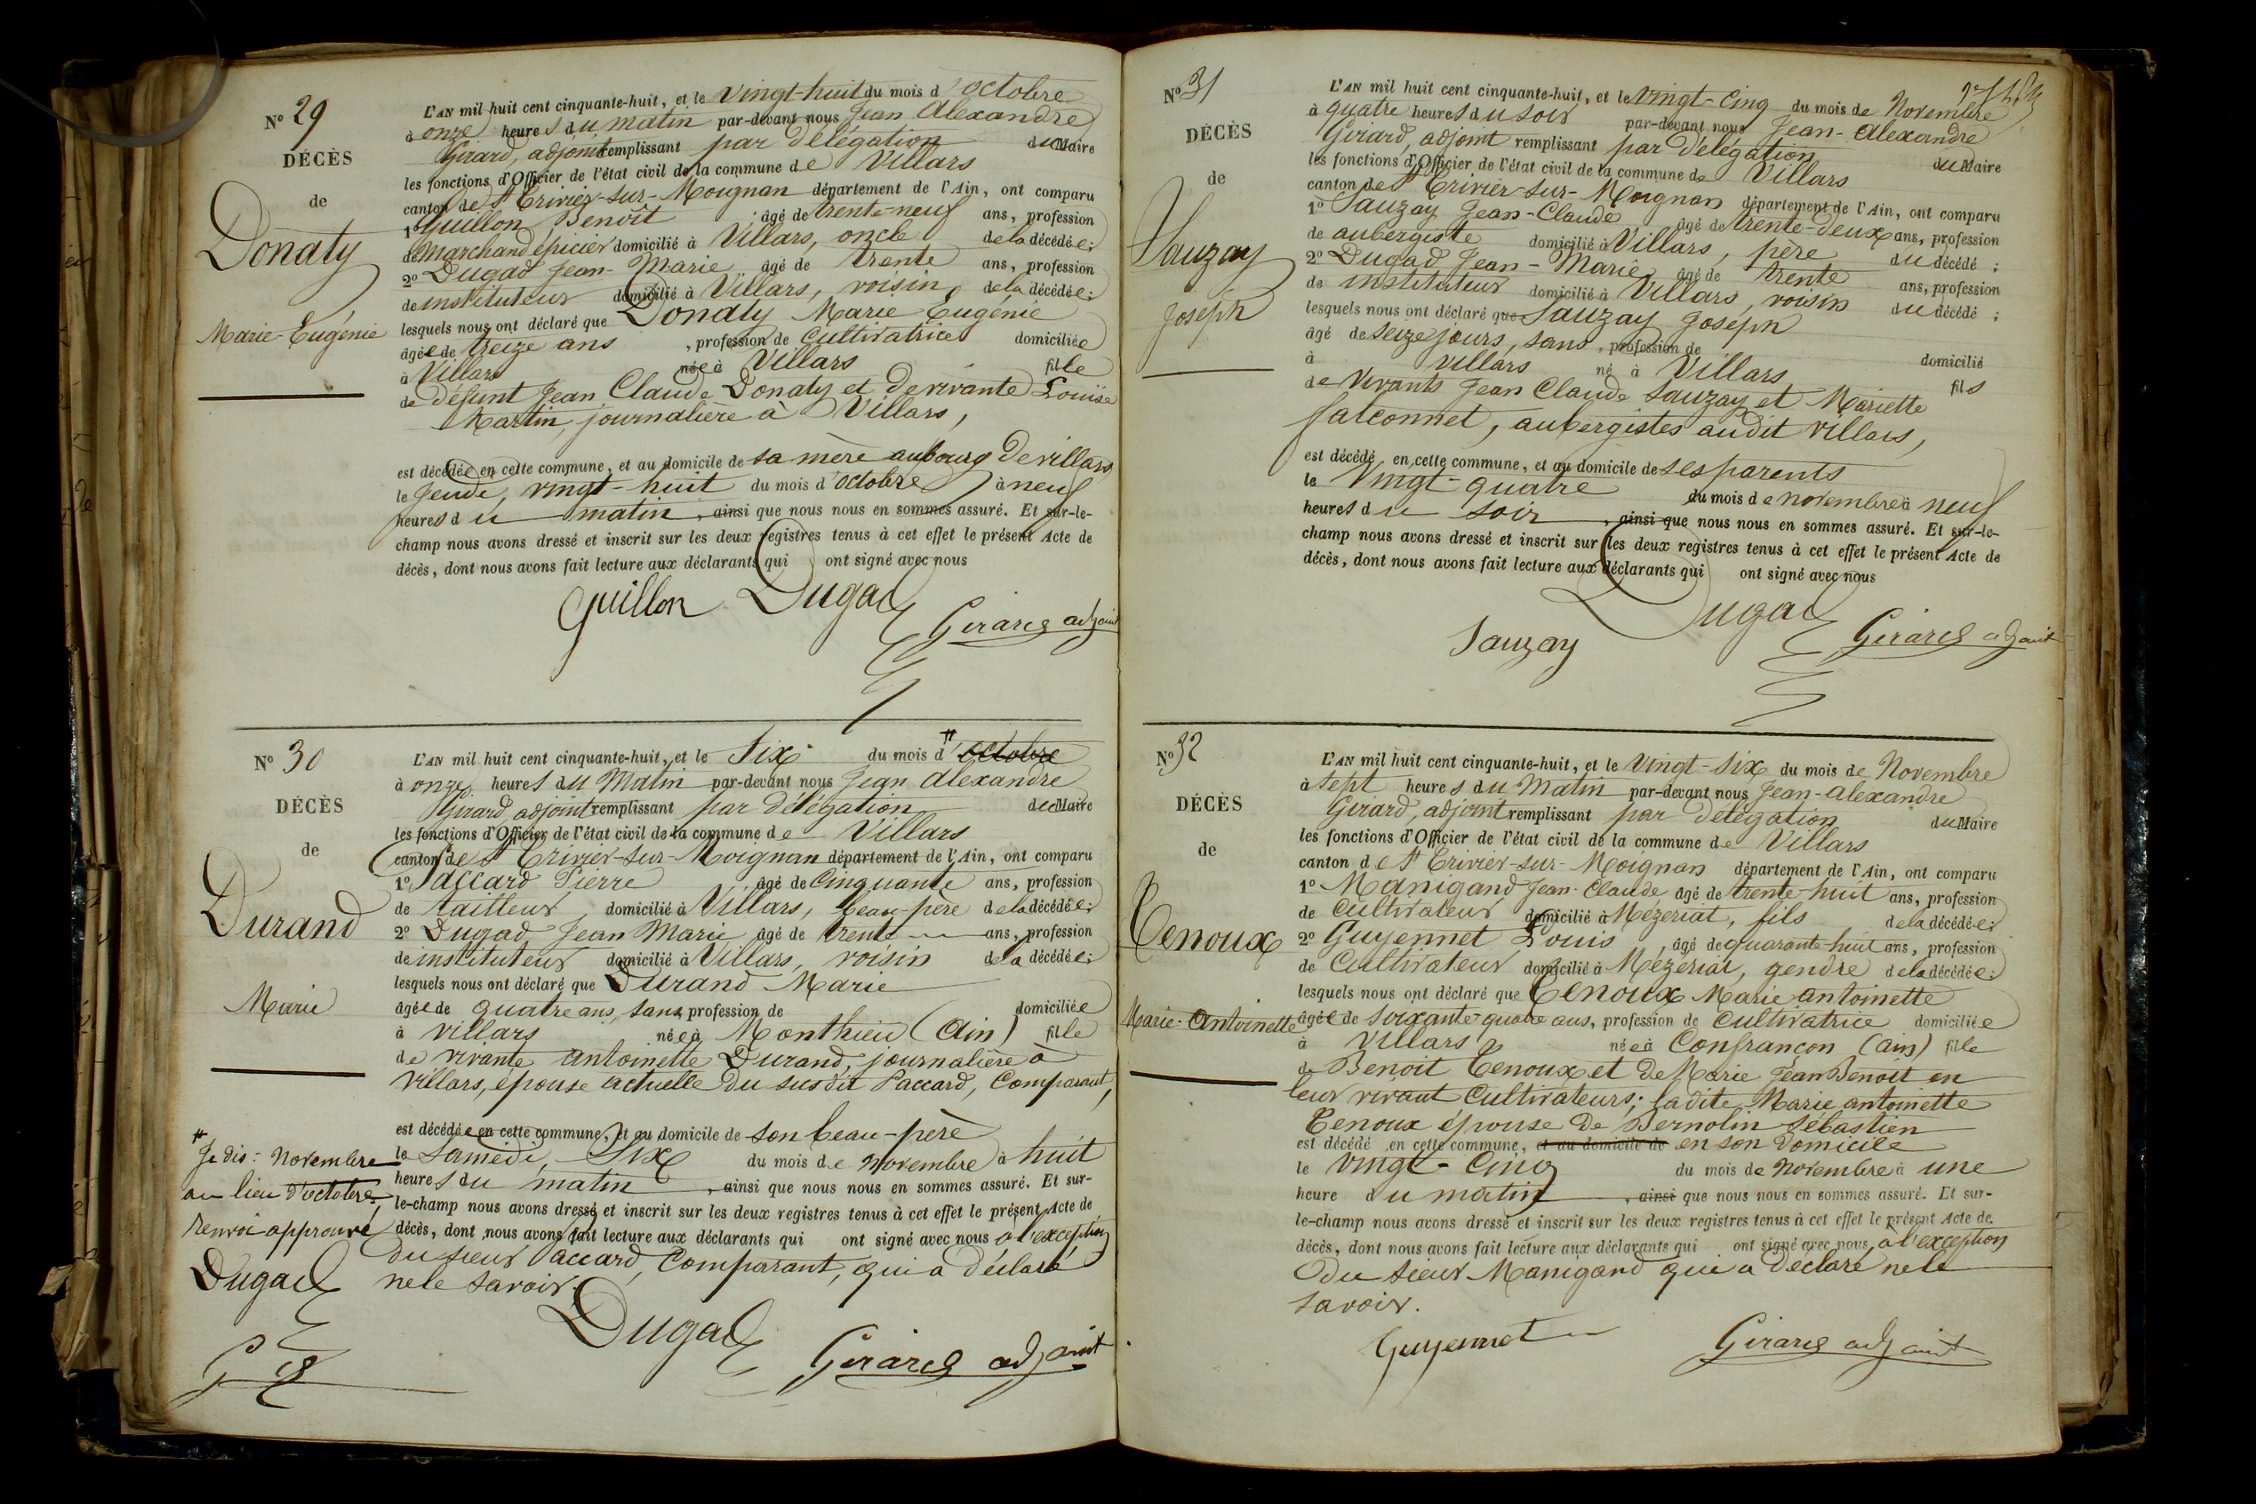 N° 29
DÉCÈS
de
Donaty
Marie-Eugénie
L'AN mil huit cent cinquante-huit, et le Vingt-huit du mois d'octobre
à onze heures du matin par-devant nous Jean Alexandre
Girard, adjoint remplissant par délégation du Maire
les fonctions d'Officier de l'état civil de la commune de Villars
canton de St Trivier-sur-Moignan département de l'Ain, ont comparu
1° Guillon Benoît âgé de trente-neuf ans, profession
de Marchand épicier domicilié à Villars, oncle de la décédée;
2° Dugad Jean-Marie âgé de trente ans, profession
de instituteur domicilié à Villars, voisin, de la décédée;
lesquels nous ont déclaré que Donaty Marie Eugénie
âgée de treize ans, profession de cultivatrice domiciliée
à Villars née à Villars fille
de défunt Jean Claude Donaty et de vivante Louise
Martin, journalière à Villars,
est décédée en cette commune, et au domicile de sa mère au bourg de villars
le Jeudi, vingt-huit du mois d'octobre à neuf
heures du matin, ainsi que nous nous en sommes assuré. Et sur-le-
champ nous avons dressé et inscrit sur les deux registres tenus à cet effet le présent Acte de
décès, dont nous avons fait lecture aux déclarants qui ont signé avec nous
Guillon Dugad
Girard adjoint
N° 30
DÉCÈS
de
Durand
Marie
L'AN mil huit cent cinquante-huit, et le Six du mois d'octobre
à onze heures du Matin par-devant nous Jean Alexandre
Girard, adjoint remplissant par délégation du Maire
les fonctions d'Officier de l'état civil de la commune de Villars
canton de St Trivier-sur-Moignan département de l'Ain, ont comparu
1° Paccard Pierre âgé de Cinquante ans, profession
de tailleur domicilié à Villars, beau-père de la décédée;
2° Dugad Jean Marie âgé de trente ans, profession
de instituteur domicilié à Villars, voisin de la décédée;
lesquels nous ont déclaré que Durand Marie
âgée de quatre ans, sans profession de domiciliée
à villars née à Monthieu (Ain) fille
de vivante antoinette Durand, journalière à
Villars, épouse actuelle du susdit Paccard, Comparant,
est décédée en cette commune, et au domicile de son beau-père
le Samedi, Six du mois de Novembre à huit
heures du matin, ainsi que nous nous en sommes assuré. Et sur-
le-champ nous avons dressé et inscrit sur les deux registres tenus à cet effet le présent Acte de
décès, dont nous avons fait lecture aux déclarants qui ont signé avec nous à l'exception
du sieur Paccard, Comparant, qui a déclaré
ne le savoir.
Je dis: Novembre
au lieu d'octobre,
Renvoi approuvé
Dugad
Dugad
Girard adjoint
N° 31
DÉCÈS
de
Sauzay
Joseph
L'AN mil huit cent cinquante-huit, et le Vingt-Cinq du mois de Novembre
à quatre heures du soir par-devant nous Jean-Alexandre
Girard, adjoint remplissant par délégation du Maire
les fonctions d'Officier de l'état civil de la commune de Villars
canton de St Trivier-sur-Moignan département de l'Ain, ont comparu
1° Sauzay Jean-Claude âgé de trente-deux ans, profession
de aubergiste domicilié à Villars, père du décédé;
2° Dugad Jean-Marie, âgé de trente ans, profession
de instituteur domicilié à Villars, voisin du décédé;
lesquels nous ont déclaré que Sauzay Joseph
âgé de seize jours, sans, profession de domicilié
à villars né à Villars fils
de Vivants Jean Claude Sauzay et Mariette
falconnet, aubergistes audit villars,
est décédé en cette commune, et au domicile de ses parents
le Vingt-quatre du mois de novembre à neuf
heures du soir, ainsi que nous nous en sommes assuré. Et sur-le-
champ nous avons dressé et inscrit sur les deux registres tenus à cet effet le présent Acte de
décès, dont nous avons fait lecture aux déclarants qui ont signé avec nous
Dugad
Sauzay Girard adjoint
N° 32
DÉCÈS
de
Tenoux
Marie-Antoinette
L'AN mil huit cent cinquante-huit, et le Vingt-Six du mois de Novembre
à sept heures du Matin par-devant nous Jean-Alexandre
Girard, adjoint remplissant par délégation du Maire
les fonctions d'Officier de l'état civil de la commune de Villars
canton de St Trivier-sur-Moignan département de l'Ain, ont comparu
1° Manigand Jean-Claude, âgé de trente-huit ans, profession
de Cultivateur domicilié à Mézeriat, fils de la décédée;
2° Guyennet Louis, âgé de quarante-huit ans, profession
de Cultivateur domicilié à Mézeriat, gendre de la décédée;
lesquels nous ont déclaré que Tenoux Marie antoinette
âgée de soixante-quatre ans, profession de Cultivatrice domiciliée
à Villars née à Confrançon (Ain) fille
de Benoit Tenoux et de Marie Jean Benoit en
leur vivant Cultivateurs; ladite Marie antoinette
Tenoux épouse de Bernolin Sébastien
est décédé en cette commune, et au domicile de en son Domicile
le Vingt-Cinq du mois de Novembre à une
heure du matin, ainsi que nous nous en sommes assuré. Et sur-
le-champ nous avons dressé et inscrit sur les deux registres tenus à cet effet le présent Acte de
décès, dont nous avons fait lecture aux déclarants qui ont signé avec nous, à l'exception
Du sieur Manigand qui a Déclaré ne le
savoir.
Guyennet Girard adjoint